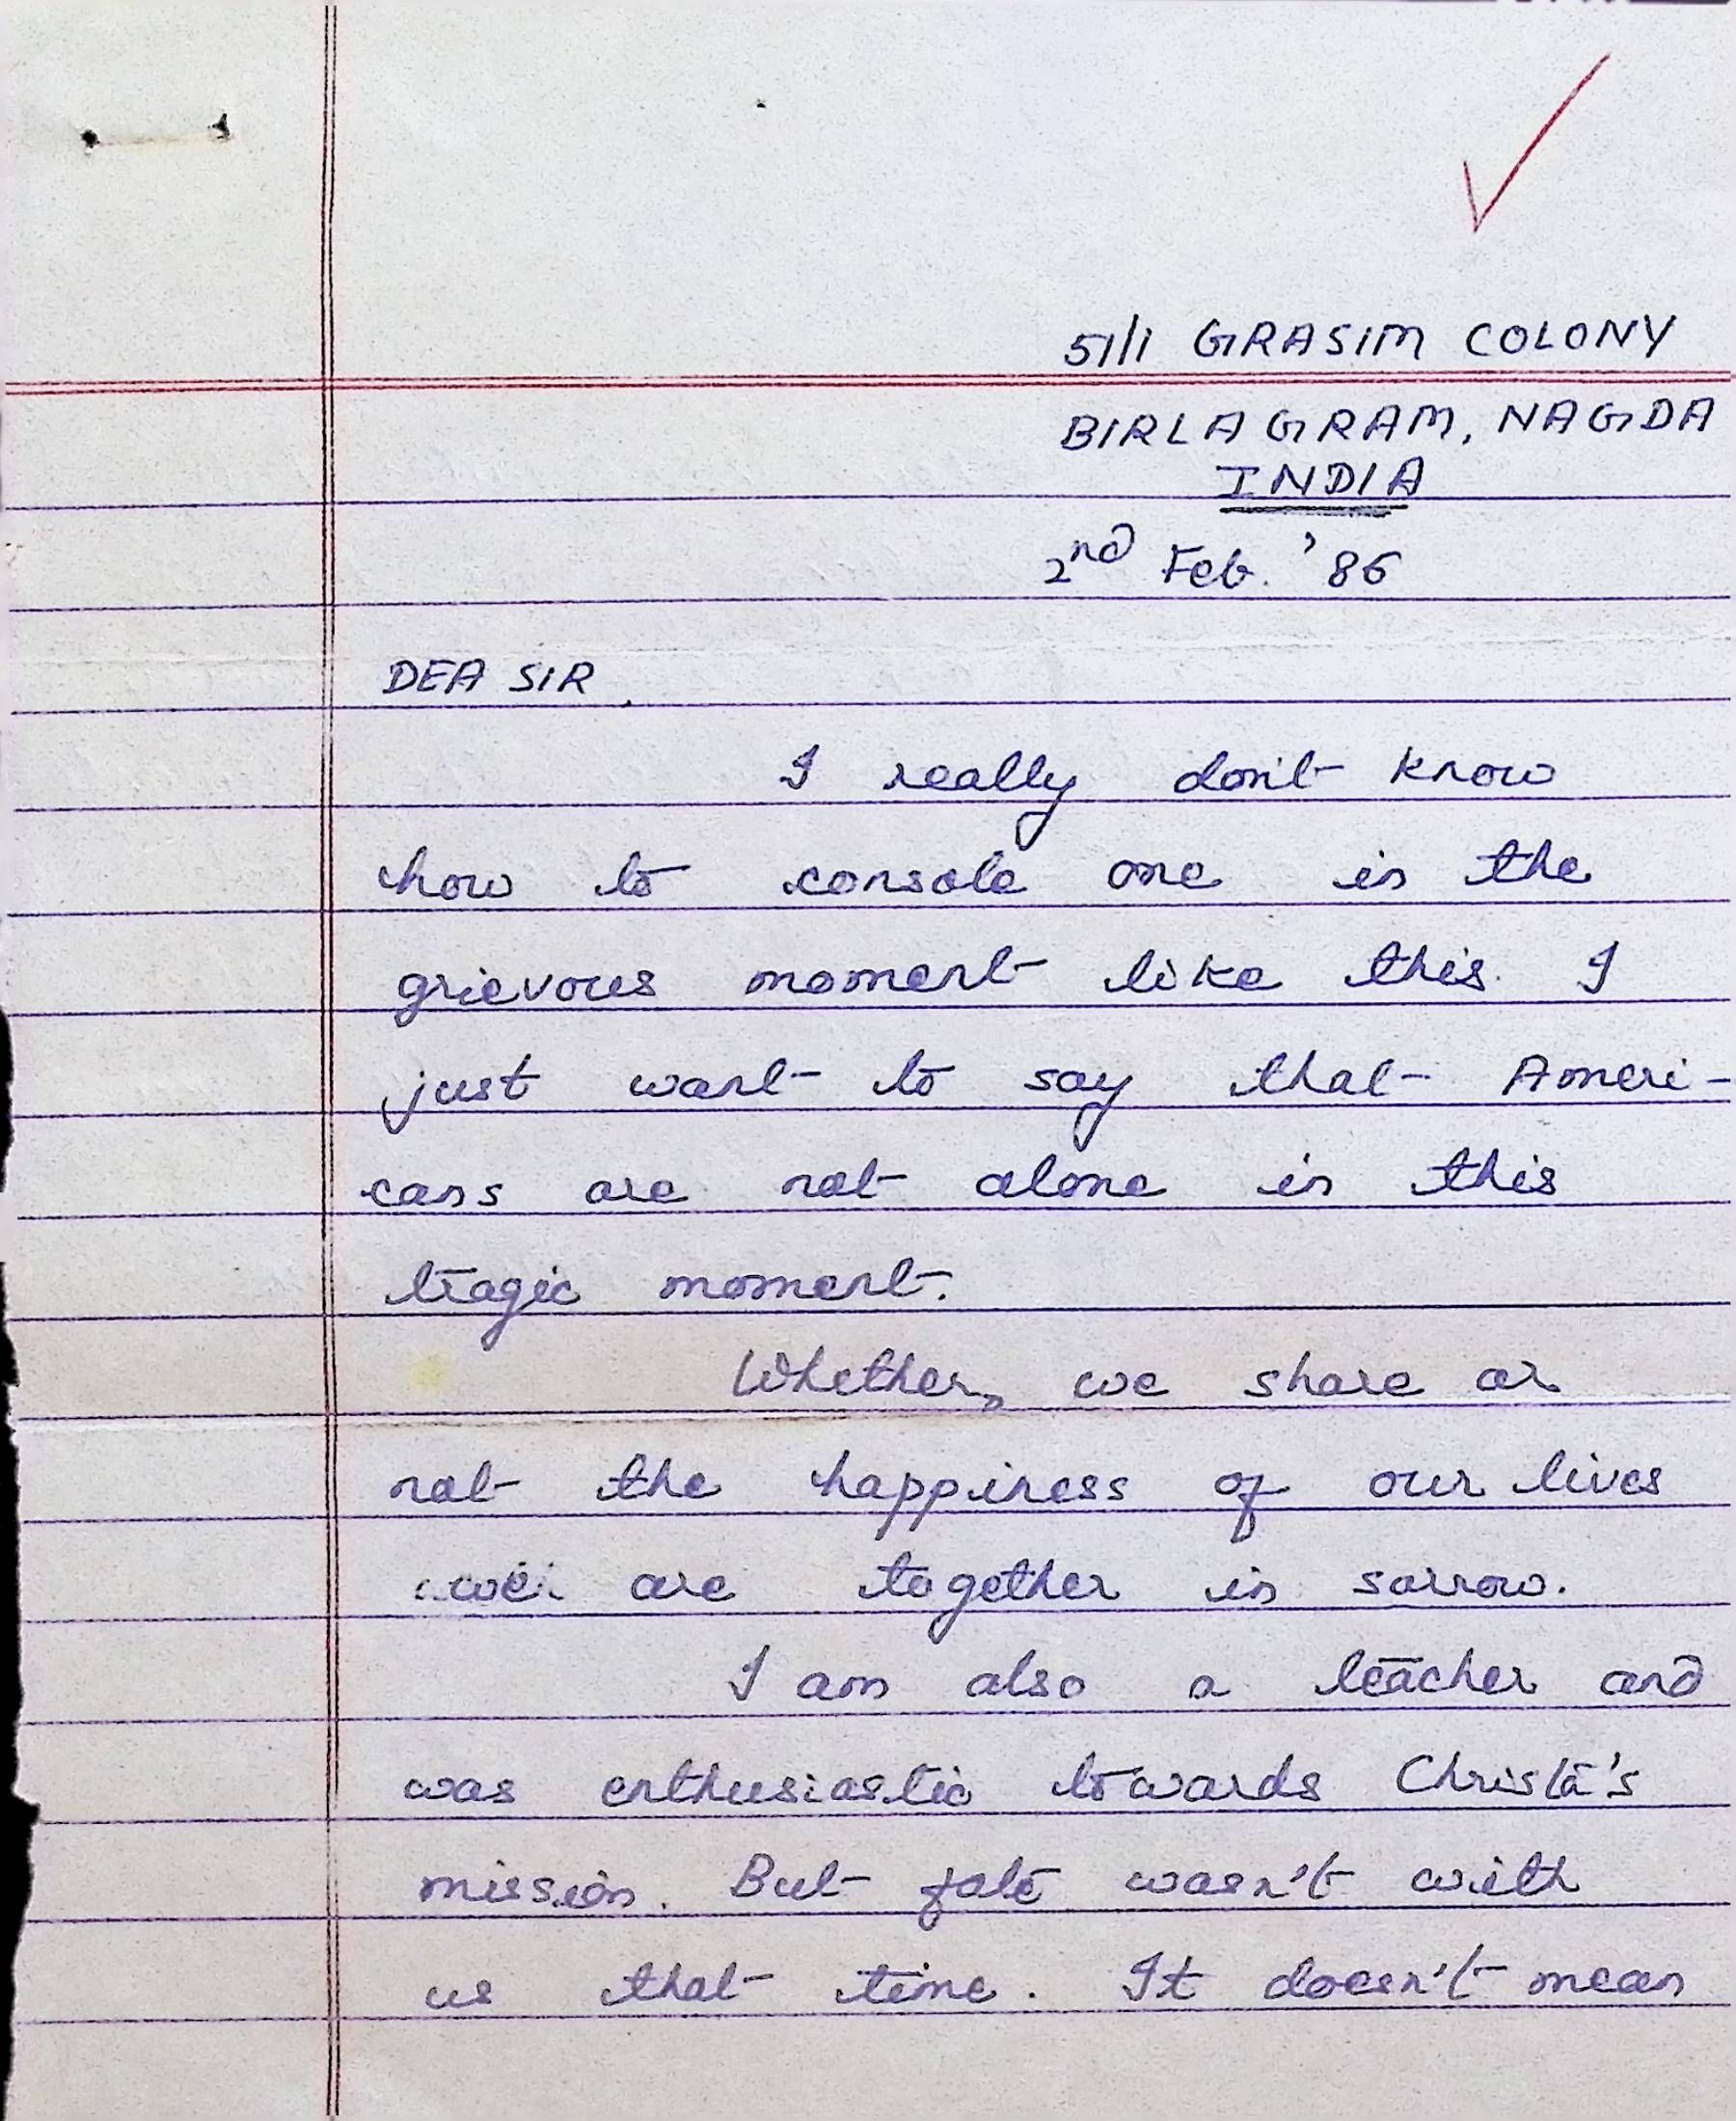 51/1 GRASIM COLONY
BIRLAGRAM, NAGDA
INDIA
2nd Feb. '86
DEA SIR,
I really don't know
how to console one in the
grievous moment like this. I
just want to say that Ameri-
cans are not alone in this
tragic moment.
Whether, we share or
not the happiness of our lives
we are together in sorrow.
I am also a teacher and
was enthusiastic towards Christa's
mission. But fate wasn't with
us that time. It doesn't mean